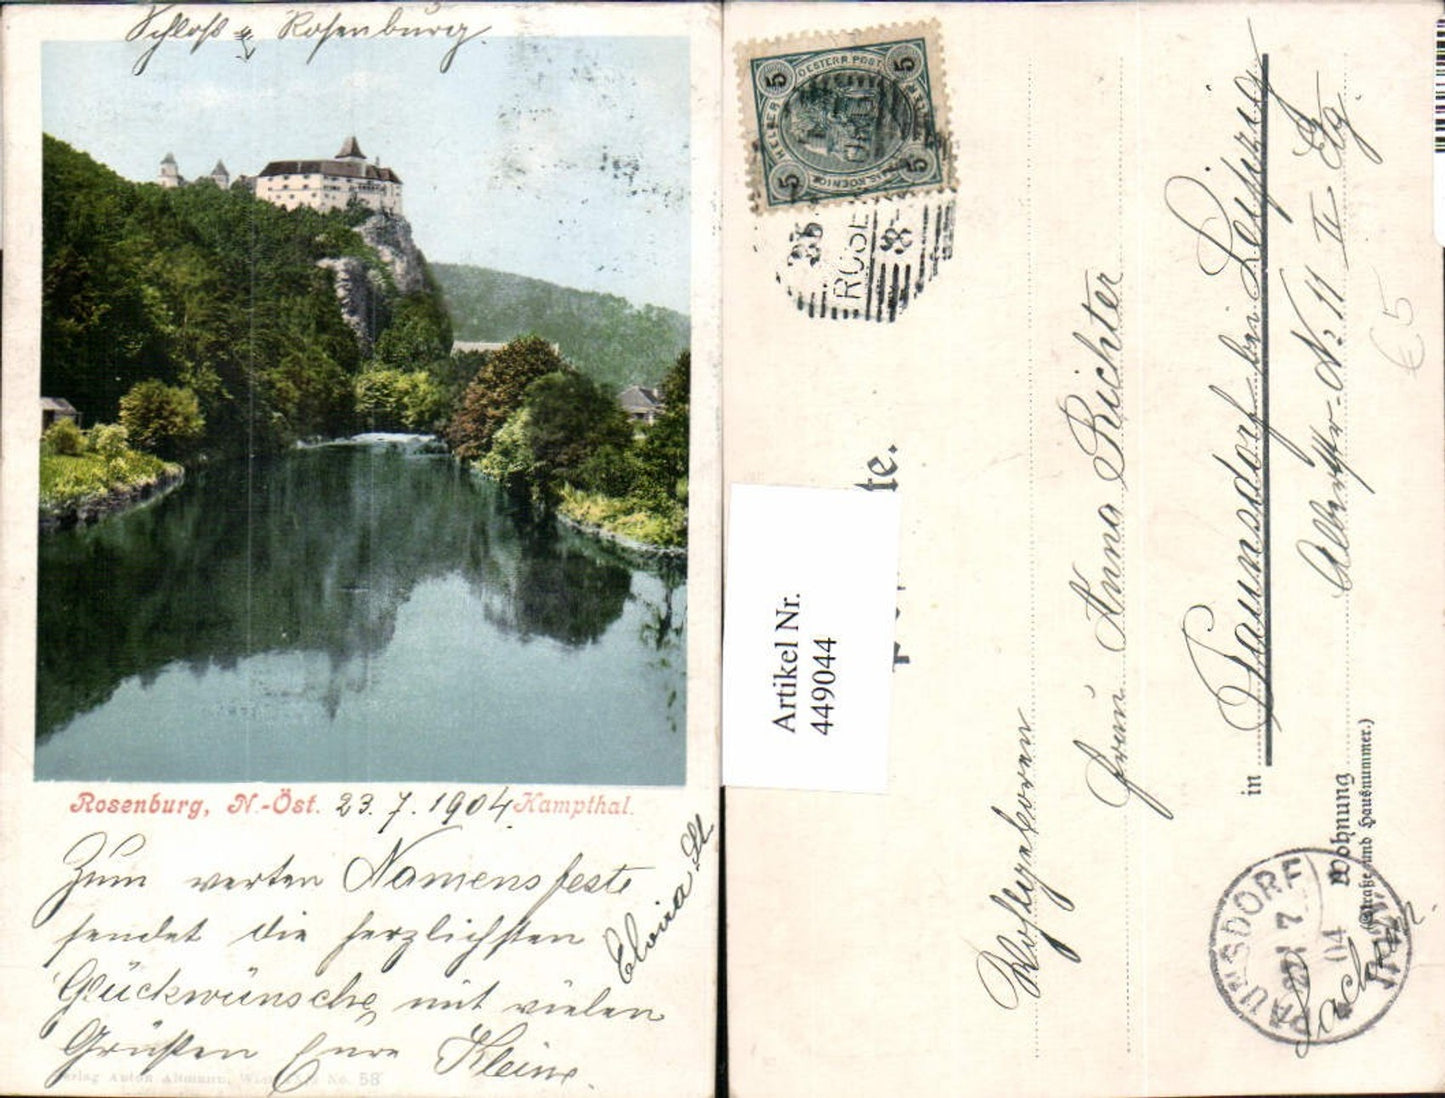 Schloß Rosenburg.
Rosenburg, N.-Öst. 23.7.1904 Kampthal.
Zum werten Namensfeste
sendet die herzlichsten
Glückwünsche, mit vielen
Grüßen Eure Kleine.
Elvira St
Verlag Anton Altmann, Wien No. 58
5 5 5 5
OESTERR. POST
HELLER
ROSE
23
8
te.
Artikel Nr.
449044
Wohlgeboren
Frau Anna Richter
in Paunsdorf bei Leipzig
Wohnung Albertstr. Nr. 11 II Etg.
(Straße und Hausnummer.)
Sachsen.
PAUNSDORF
7
04
€5